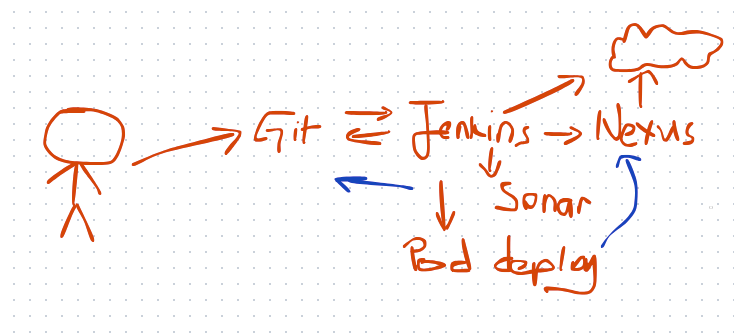 Git Jenkins Nexus
Sonar
Pod deploy